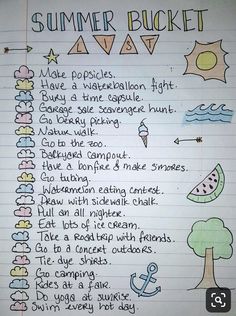 SUMMER BUCKET
LIST
Make popsicles.
Have a waterballoon fight.
Bury a time capsule.
Garage sale scavenger hunt.
Go berry picking.
Natur walk.
Go to the zoo.
Backyard campout.
Have a bonfire & make s'mores.
Go tubing.
Watermelon eating contest.
Draw with sidewalk chalk.
Pull an all nighter.
Eat lots of ice cream.
Take a roadtrip with friends.
Go to a concert outdoors.
Tie-dye shirts.
Go camping.
Rides at a fair.
Do yoga at sunrise.
Swim every hot day.